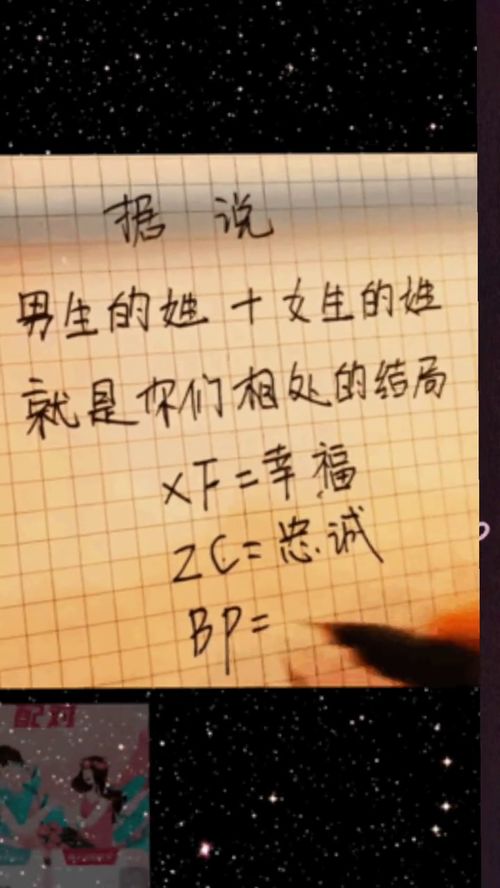 据说
男生的姓+女生的姓
就是你们相处的结局
XF=幸福
ZC=忠诚
BP=
配对